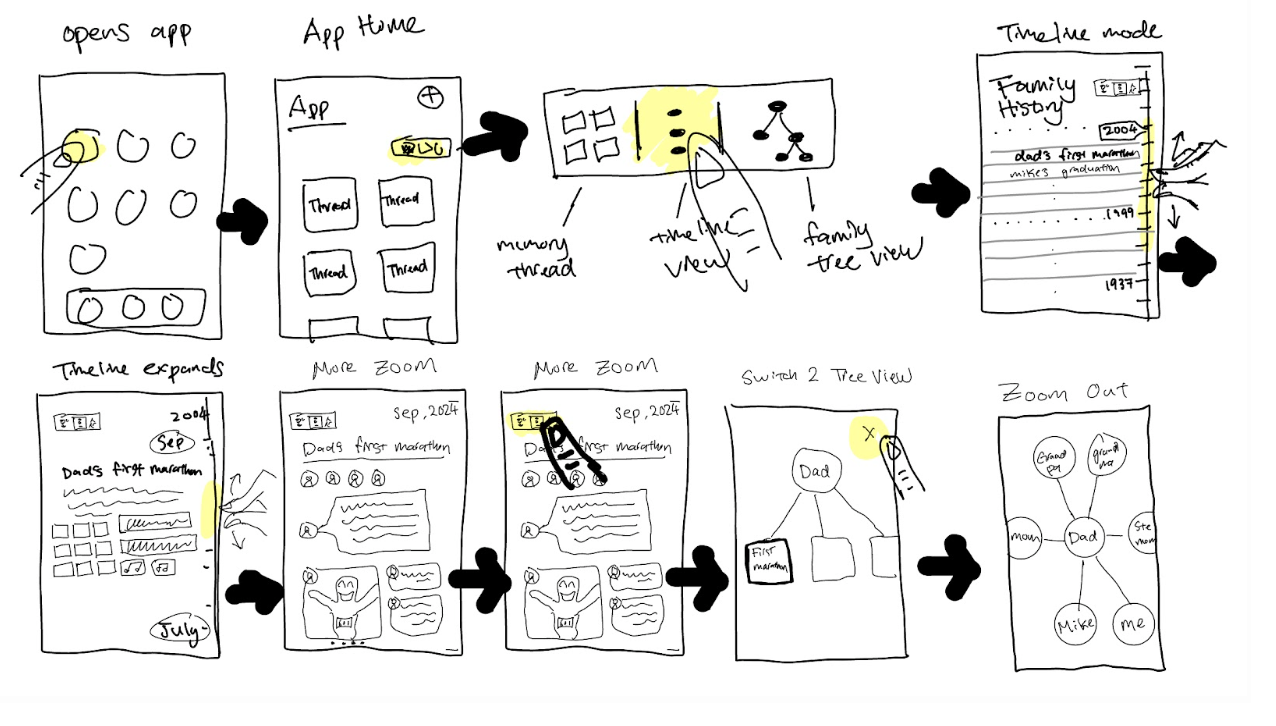 opens app
App Home
App
Thread
Thread
Thread
Thread
memory
thread
timeline
view
family
tree view
Timeline mode
Family
History
2004
dad's first marathon
mike's graduation
1999
1937
Timeline expands
2004
Sep
Dad's first marathon
July
More Zoom
Sep, 2024
Dad's first marathon
More Zoom
Sep, 2024
Dad's first marathon
Switch 2 Tree View
X
Dad
First
marathon
Zoom Out
Grand
pa
grand
ma
mom
Dad
Ste
mom
Mike
me